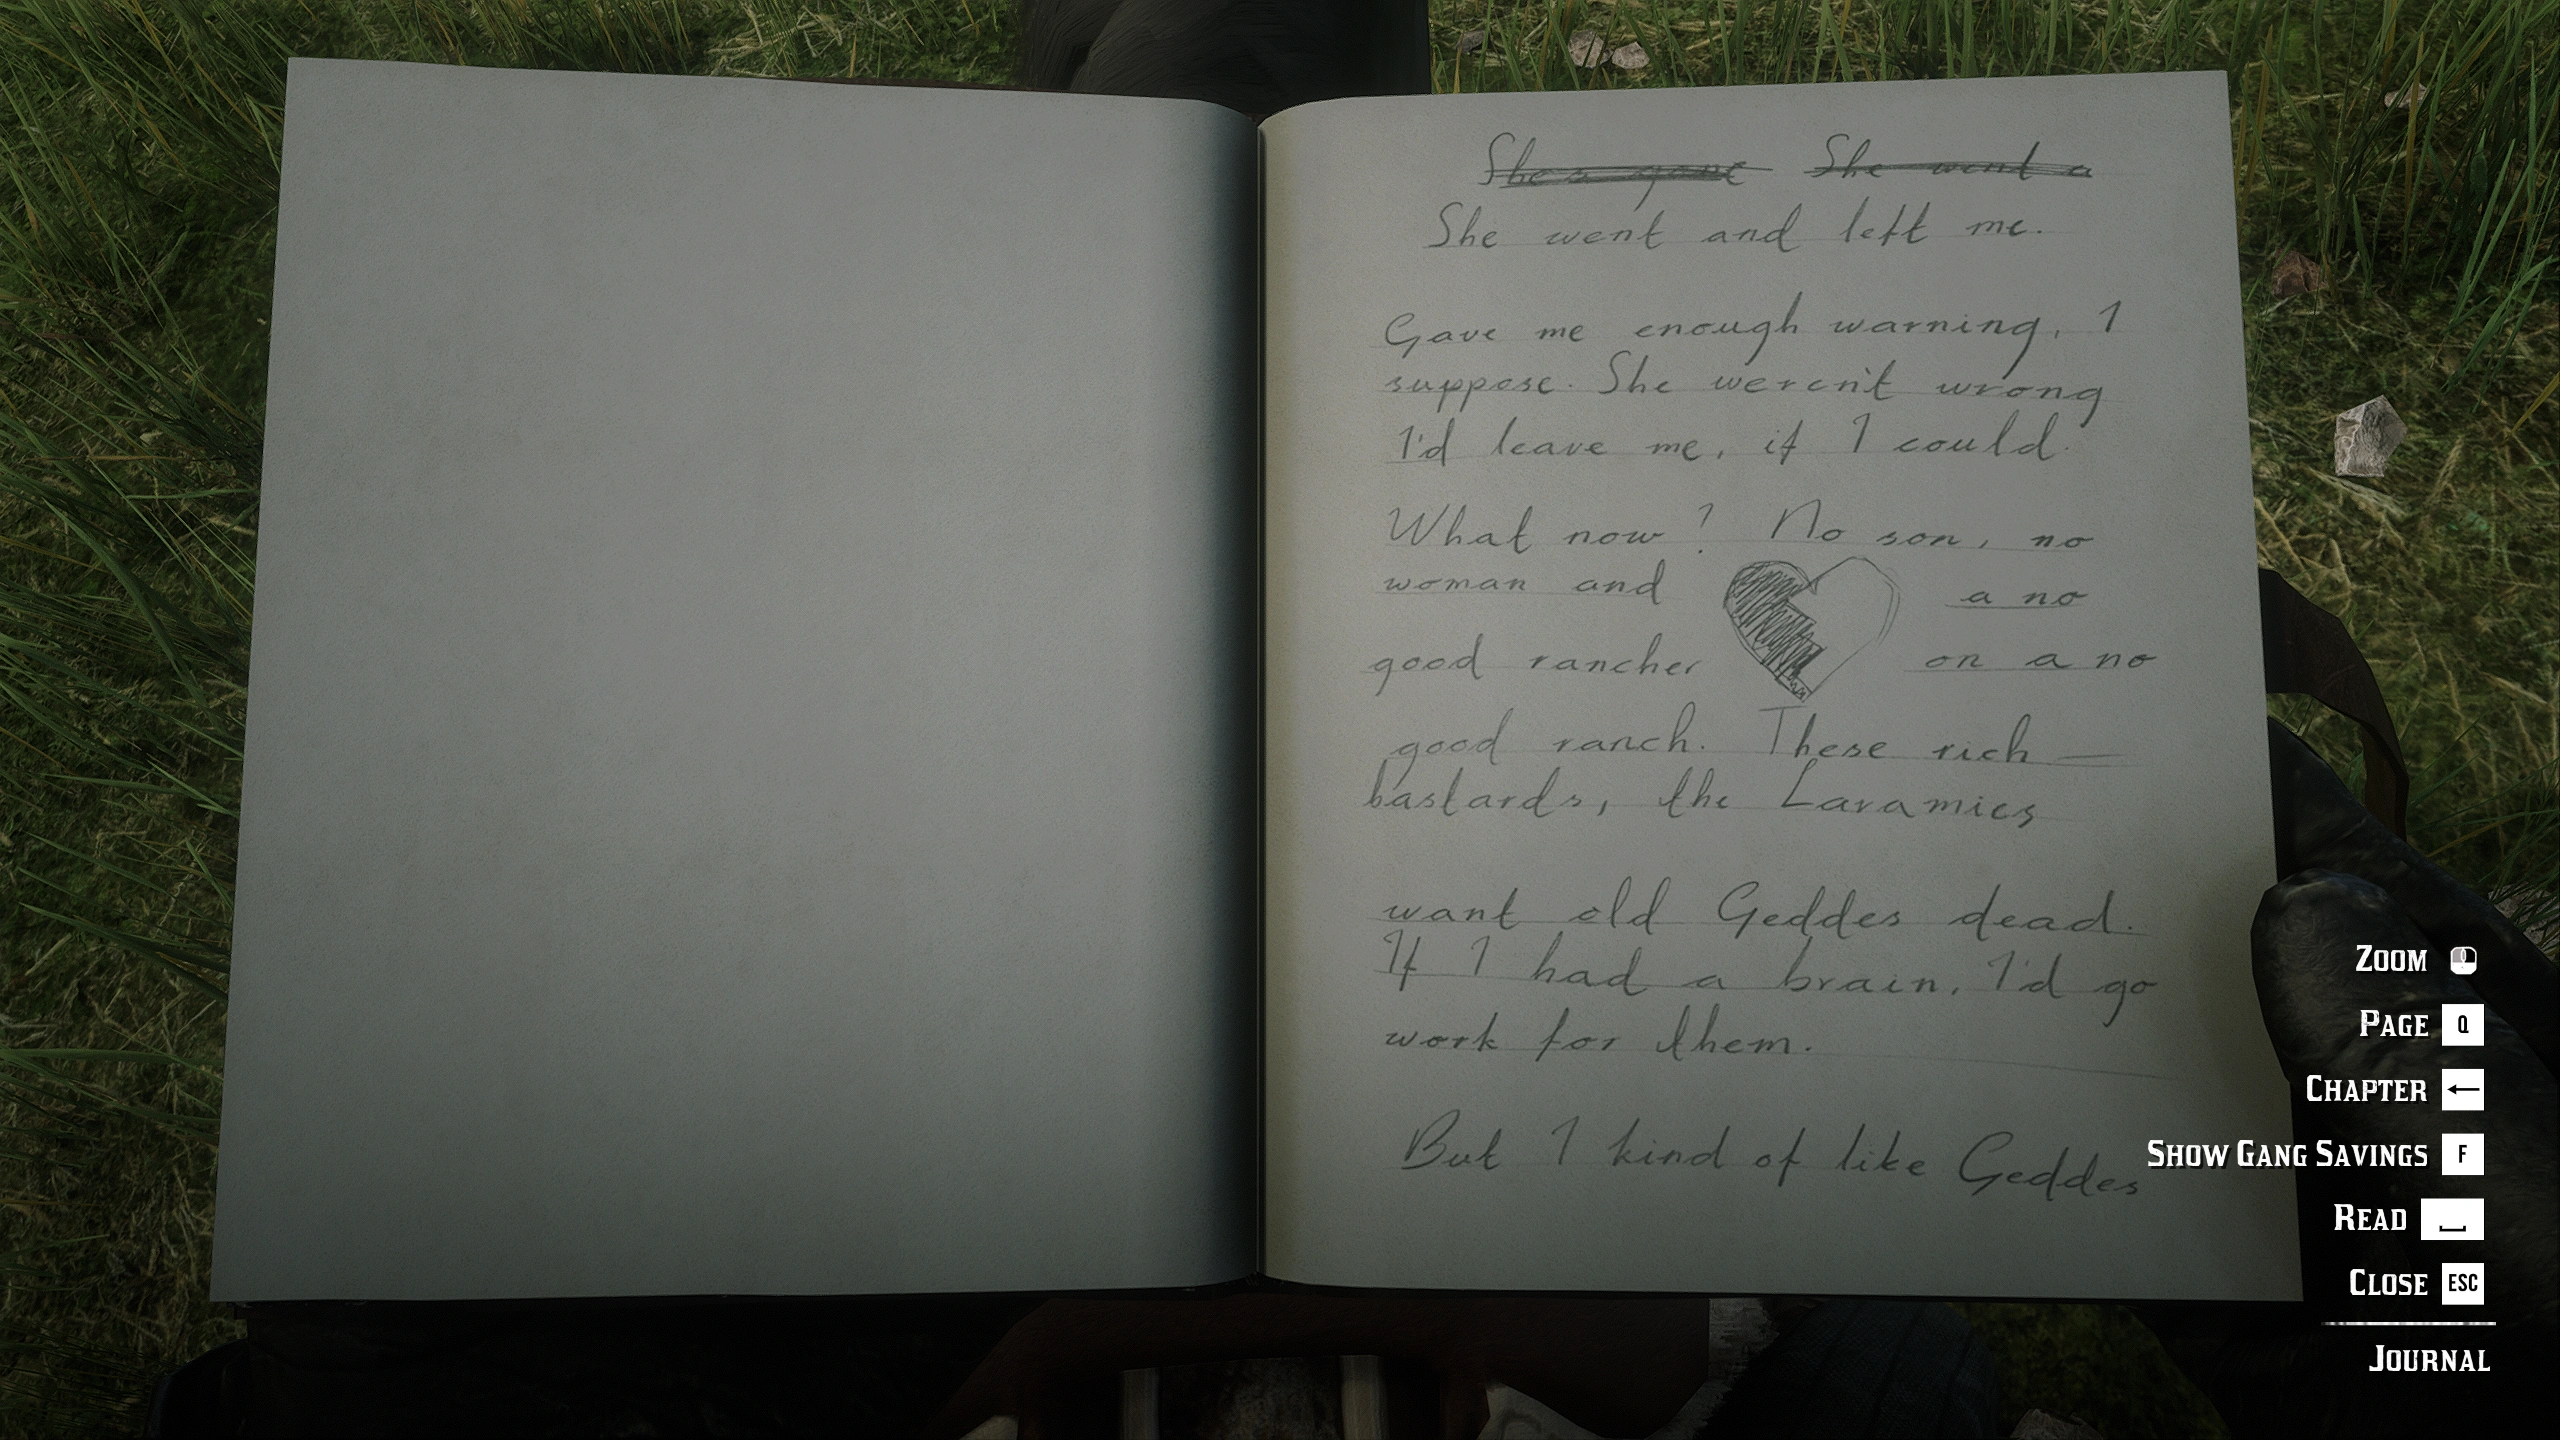 She's gone She went a
She went and left me.
Gave me enough warning, I
suppose. She weren't wrong
I'd leave me, if I could.
What now? No son, no
woman and a no
good rancher on a no
good ranch. These rich
bastards, the Laramies
want old Geddes dead.
If I had a brain, I'd go
work for them.
But I kind of like Geddes
ZOOM
PAGE Q
CHAPTER ←
SHOW GANG SAVINGS F
READ
CLOSE ESC
JOURNAL